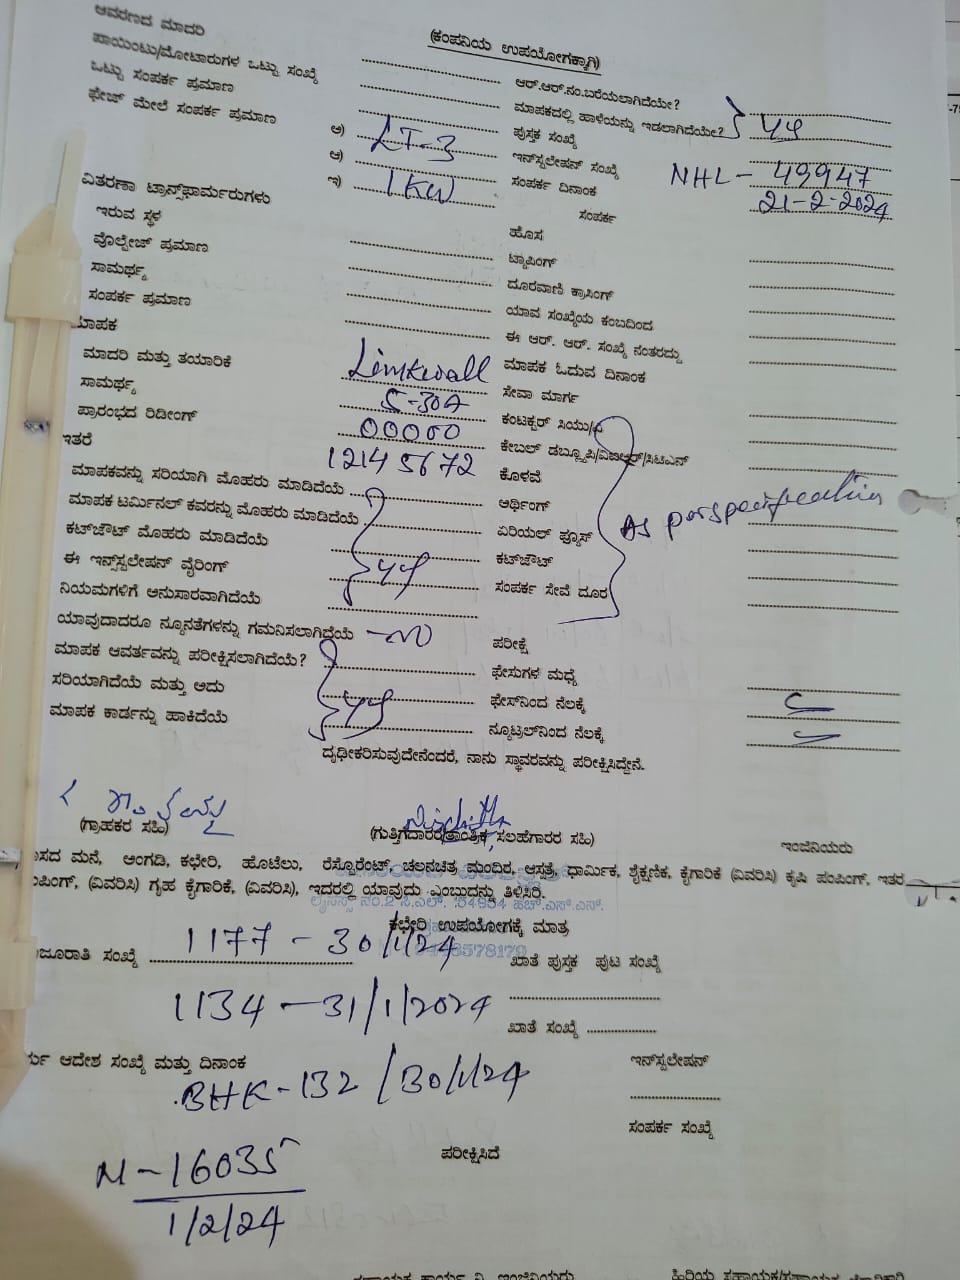 (ಕಂಪನಿಯ ಉಪಯೋಗಕ್ಕಾಗಿ)
ಆವರಣದ ಮಾದರಿ
ಆರ್.ಆರ್.ನಂ.ಬರೆಯಲಾಗಿದೆಯೇ?
ಪಾಯಿಂಟು/ಮೋಟಾರುಗಳ ಒಟ್ಟು ಸಂಖ್ಯೆ
ಮಾಪಕದಲ್ಲಿ ಹಾಳೆಯನ್ನು ಇಡಲಾಗಿದೆಯೇ?
ಒಟ್ಟು ಸಂಪರ್ಕ ಪ್ರಮಾಣ
ಪುಸ್ತಕ ಸಂಖ್ಯೆ
ಫೇಜ್ ಮೇಲೆ ಸಂಪರ್ಕ ಪ್ರಮಾಣ ಅ) LT-3
ಇನ್‌ಸ್ಟಲೇಷನ್ ಸಂಖ್ಯೆ NHL - 49947
ಆ)
ಸಂಪರ್ಕ ದಿನಾಂಕ 21-2-2024
ಇ) 1KW
ವಿತರಣಾ ಟ್ರಾನ್ಸ್‌ಫಾರ್ಮರುಗಳು
ಸಂಪರ್ಕ
ಇರುವ ಸ್ಥಳ
ಹೊಸ
ವೊಲ್ಟೇಜ್ ಪ್ರಮಾಣ
ಟ್ಯಾಪಿಂಗ್
ಸಾಮರ್ಥ್ಯ
ದೂರವಾಣಿ ಕ್ರಾಸಿಂಗ್
ಸಂಪರ್ಕ ಪ್ರಮಾಣ
ಯಾವ ಸಂಖ್ಯೆಯ ಕಂಬದಿಂದ
ಮಾಪಕ
ಈ ಆರ್. ಆರ್. ಸಂಖ್ಯೆ ನಂತರದ್ದು
ಮಾದರಿ ಮತ್ತು ತಯಾರಿಕೆ
ಮಾಪಕ ಓದುವ ದಿನಾಂಕ
ಸಾಮರ್ಥ್ಯ 5-30A
ಸೇವಾ ಮಾರ್ಗ
ಪ್ರಾರಂಭದ ರಿಡೀಂಗ್ 00000
ಕಂಟಕ್ಟರ್ ಸಿಯು/
ಇತರೆ 12145672
ಕೇಬಲ್ ಡಬ್ಲ್ಯೂಪಿ/ವಿಐಆರ್/ಸಿಟಿಎಸ್
ಮಾಪಕವನ್ನು ಸರಿಯಾಗಿ ಮೊಹರು ಮಾಡಿದೆಯೆ
ಕೊಳವೆ
ಮಾಪಕ ಟರ್ಮಿನಲ್ ಕವರನ್ನು ಮೊಹರು ಮಾಡಿದೆಯೆ
ಆರ್ಥಿಂಗ್ As per specification
ಕಟ್‌ಔಟ್ ಮೊಹರು ಮಾಡಿದೆಯೆ
ಏರಿಯಲ್ ಫ್ಯೂಸ್
ಈ ಇನ್‌ಸ್ಟಲೇಷನ್ ವೈರಿಂಗ್
ಕಟ್‌ಔಟ್
ನಿಯಮಗಳಿಗೆ ಅನುಸಾರವಾಗಿದೆಯೆ
ಸಂಪರ್ಕ ಸೇವೆ ದೂರ
ಯಾವುದಾದರೂ ನ್ಯೂನತೆಗಳನ್ನು ಗಮನಿಸಲಾಗಿದೆಯೆ
ಪರೀಕ್ಷೆ
ಮಾಪಕ ಆವರ್ತವನ್ನು ಪರೀಕ್ಷಿಸಲಾಗಿದೆಯೆ?
ಫೇಸುಗಳ ಮಧ್ಯೆ
ಸರಿಯಾಗಿದೆಯೆ ಮತ್ತು ಅದು
ಫೇಸ್‌ನಿಂದ ನೆಲಕ್ಕೆ
ಮಾಪಕ ಕಾರ್ಡನ್ನು ಹಾಕಿದೆಯೆ
ನ್ಯೂಟ್ರಲ್‌ನಿಂದ ನೆಲಕ್ಕೆ
ದೃಢೀಕರಿಸುವುದೇನೆಂದರೆ, ನಾನು ಸ್ಥಾವರವನ್ನು ಪರೀಕ್ಷಿಸಿದ್ದೇನೆ.
(ಗ್ರಾಹಕರ ಸಹಿ)
(ಗುತ್ತಿಗೆದಾರರ/ತಾಂತ್ರಿಕ ಸಲಹೆಗಾರರ ಸಹಿ)
ಇಂಜಿನಿಯರು
ಮನೆ, ಅಂಗಡಿ, ಕಛೇರಿ, ಹೊಟೆಲು, ರೆಸ್ಟೊರೆಂಟ್, ಚಲನಚಿತ್ರ ಮಂದಿರ, ಆಸ್ಪತ್ರೆ, ಧಾರ್ಮಿಕ, ಶೈಕ್ಷಣಿಕ, ಕೈಗಾರಿಕೆ (ವಿವರಿಸಿ) ಕೃಷಿ ಪಂಪಿಂಗ್, ಇತರ
(ವಿವರಿಸಿ) ಗೃಹ ಕೈಗಾರಿಕೆ, (ವಿವರಿಸಿ), ಇದರಲ್ಲಿ ಯಾವುದು ಎಂಬುದನ್ನು ತಿಳ್ಳಿಸಿರಿ.
ಕಛೇರಿ ಉಪಯೋಗಕ್ಕೆ ಮಾತ್ರ
1177 - 30/1/24
ಸಂಖ್ಯೆ
ಖಾತೆ ಪುಸ್ತಕ ಪುಟ ಸಂಖ್ಯೆ
1134 - 31/1/2024
ಖಾತೆ ಸಂಖ್ಯೆ
ಆದೇಶ ಸಂಖ್ಯೆ ಮತ್ತು ದಿನಾಂಕ
ಇನ್‌ಸ್ಟಲೇಷನ್
BHK-132 / 30/1/24
ಸಂಪರ್ಕ ಸಂಖ್ಯೆ
ಪರೀಕ್ಷಿಸಿದೆ
M - 16035
1/2/24